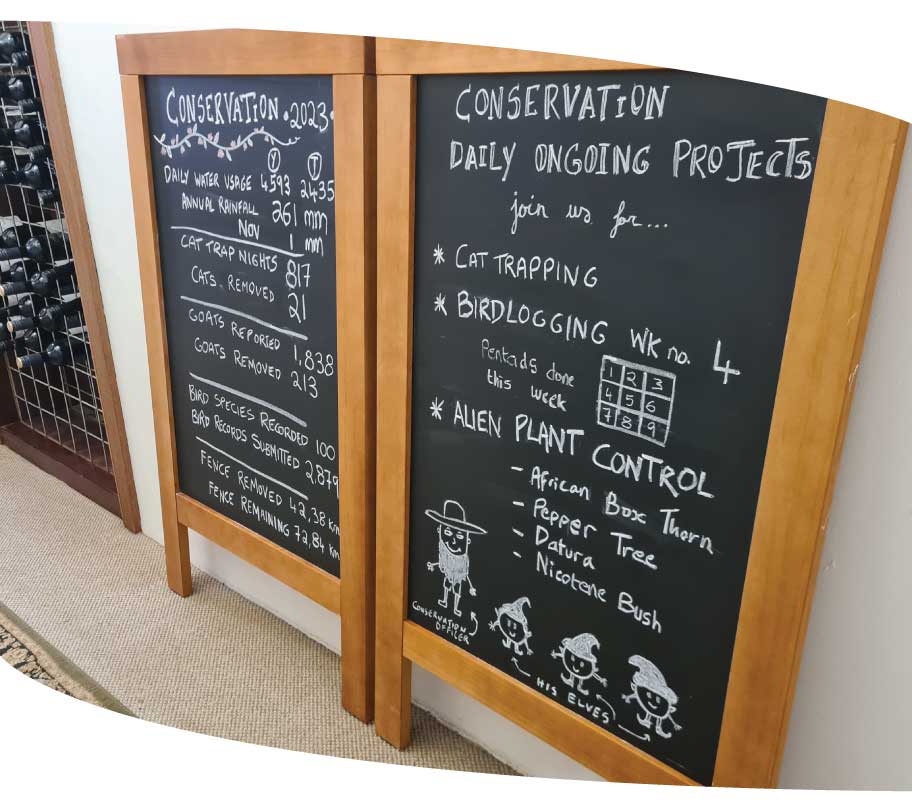 CONSERVATION • 2023 •
Y T
DAILY WATER USAGE 4593 2435
ANNUAL RAINFALL 261 mm
NOV 1 mm
CAT TRAP NIGHTS 817
CATS REMOVED 21
GOATS REPORTED 1,838
GOATS REMOVED 213
BIRD SPECIES RECORDED 100
BIRD RECORDS SUBMITTED 2,879
FENCE REMOVED 42,38 km
FENCE REMAINING 72,84 km
CONSERVATION
DAILY ONGOING PROJECTS
join us for...
* CAT TRAPPING
* BIRDLOGGING WK no. 4
Pentads done
this week
1 2 3
4 5 6
7 8 9
* ALIEN PLANT CONTROL
- African Box Thorn
- Pepper Tree
- Datura
- Nicotene Bush
CONSERVATION
OFFICER
HIS ELVES